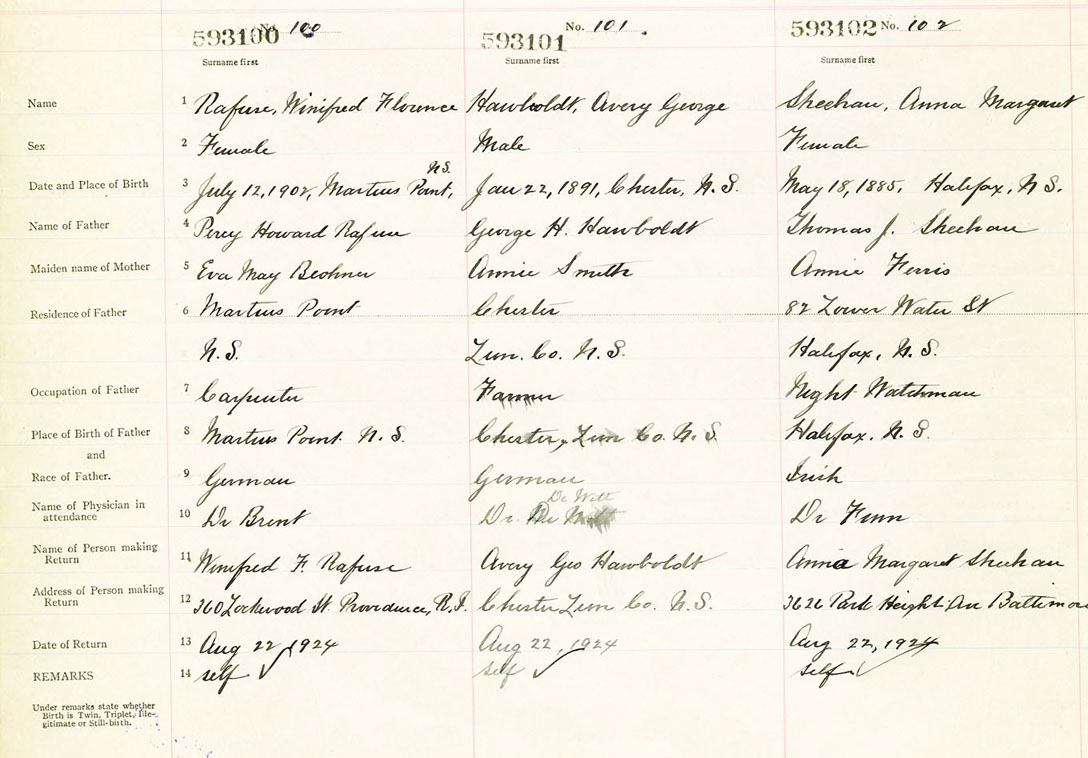 593100 No. 100
Surname first
593101 No. 101
Surname first
593102 No. 102
Surname first
Name 1 Rafuse, Winifred Florence Hawboldt, Avery George Sheehan, Anna Margaret
Sex 2 Female Male Female
N.S.
Date and Place of Birth 3 July 12, 1902, Martins Point, Jan 22, 1891, Chester, N.S. May 18, 1885, Halifax, N.S.
Name of Father 4 Percy Howard Rafuse George H. Hawboldt Thomas J. Sheehan
Maiden name of Mother 5 Eva May Beohner Annie Smith Annie Ferris
Residence of Father 6 Martins Point Chester 82 Lower Water St
N.S. Lun. Co. N.S. Halifax, N.S.
Occupation of Father 7 Carpenter Farmer Night Watchman
Place of Birth of Father 8 Martins Point N.S. Chester, Lun Co. N.S. Halifax, N.S.
and
Race of Father. 9 German German Irish
De Witt
Name of Physician in
attendance 10 Dr Brent Dr. Dr Finn
Name of Person making
Return 11 Winifred F. Rafuse Avery Geo Hawboldt Anna Margaret Sheehan
Address of Person making
Return 12 360 Lockwood St. Providence, R.I. Chester Lun Co. N.S. 3626 Park Height Av Baltimore
Date of Return 13 Aug 22, 1924 Aug 22, 1924 Aug 22, 1924
REMARKS 14 self self self
Under remarks state whether
Birth is Twin, Triplet, Ille-
gitimate or Still-birth.